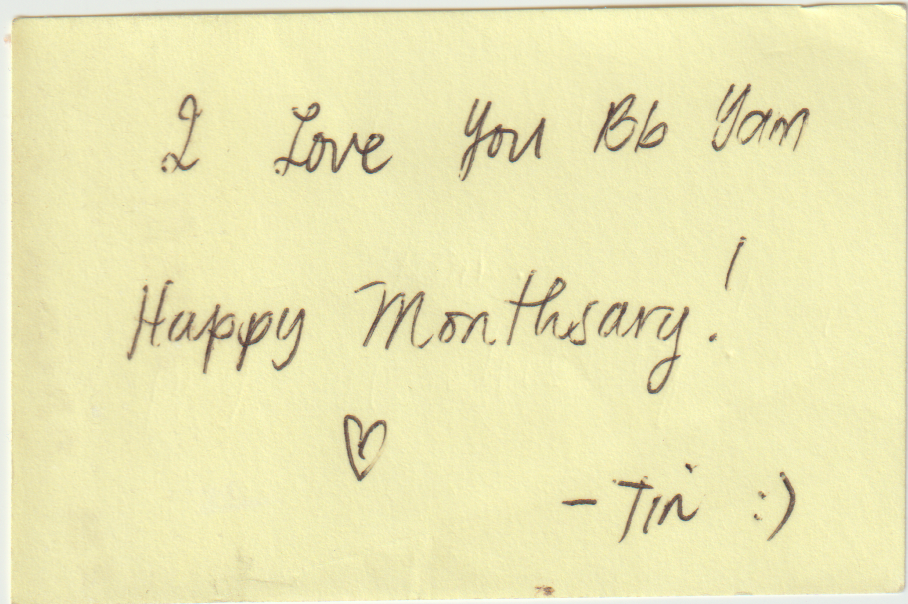 I Love You Bb Yam
Happy Monthsary!
♡
- Tin :)